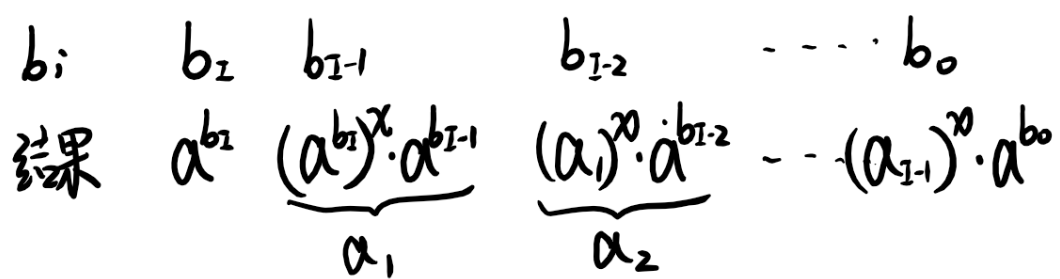 bᵢ b_I b_{I-1} b_{I-2} ---- b₀
结果 a^{b_I} (a^{b_I})^x · a^{b_{I-1}} (a₁)^x · a^{b_{I-2}} --- (a_{I-1})^x · a^{b₀}
a₁ a₂